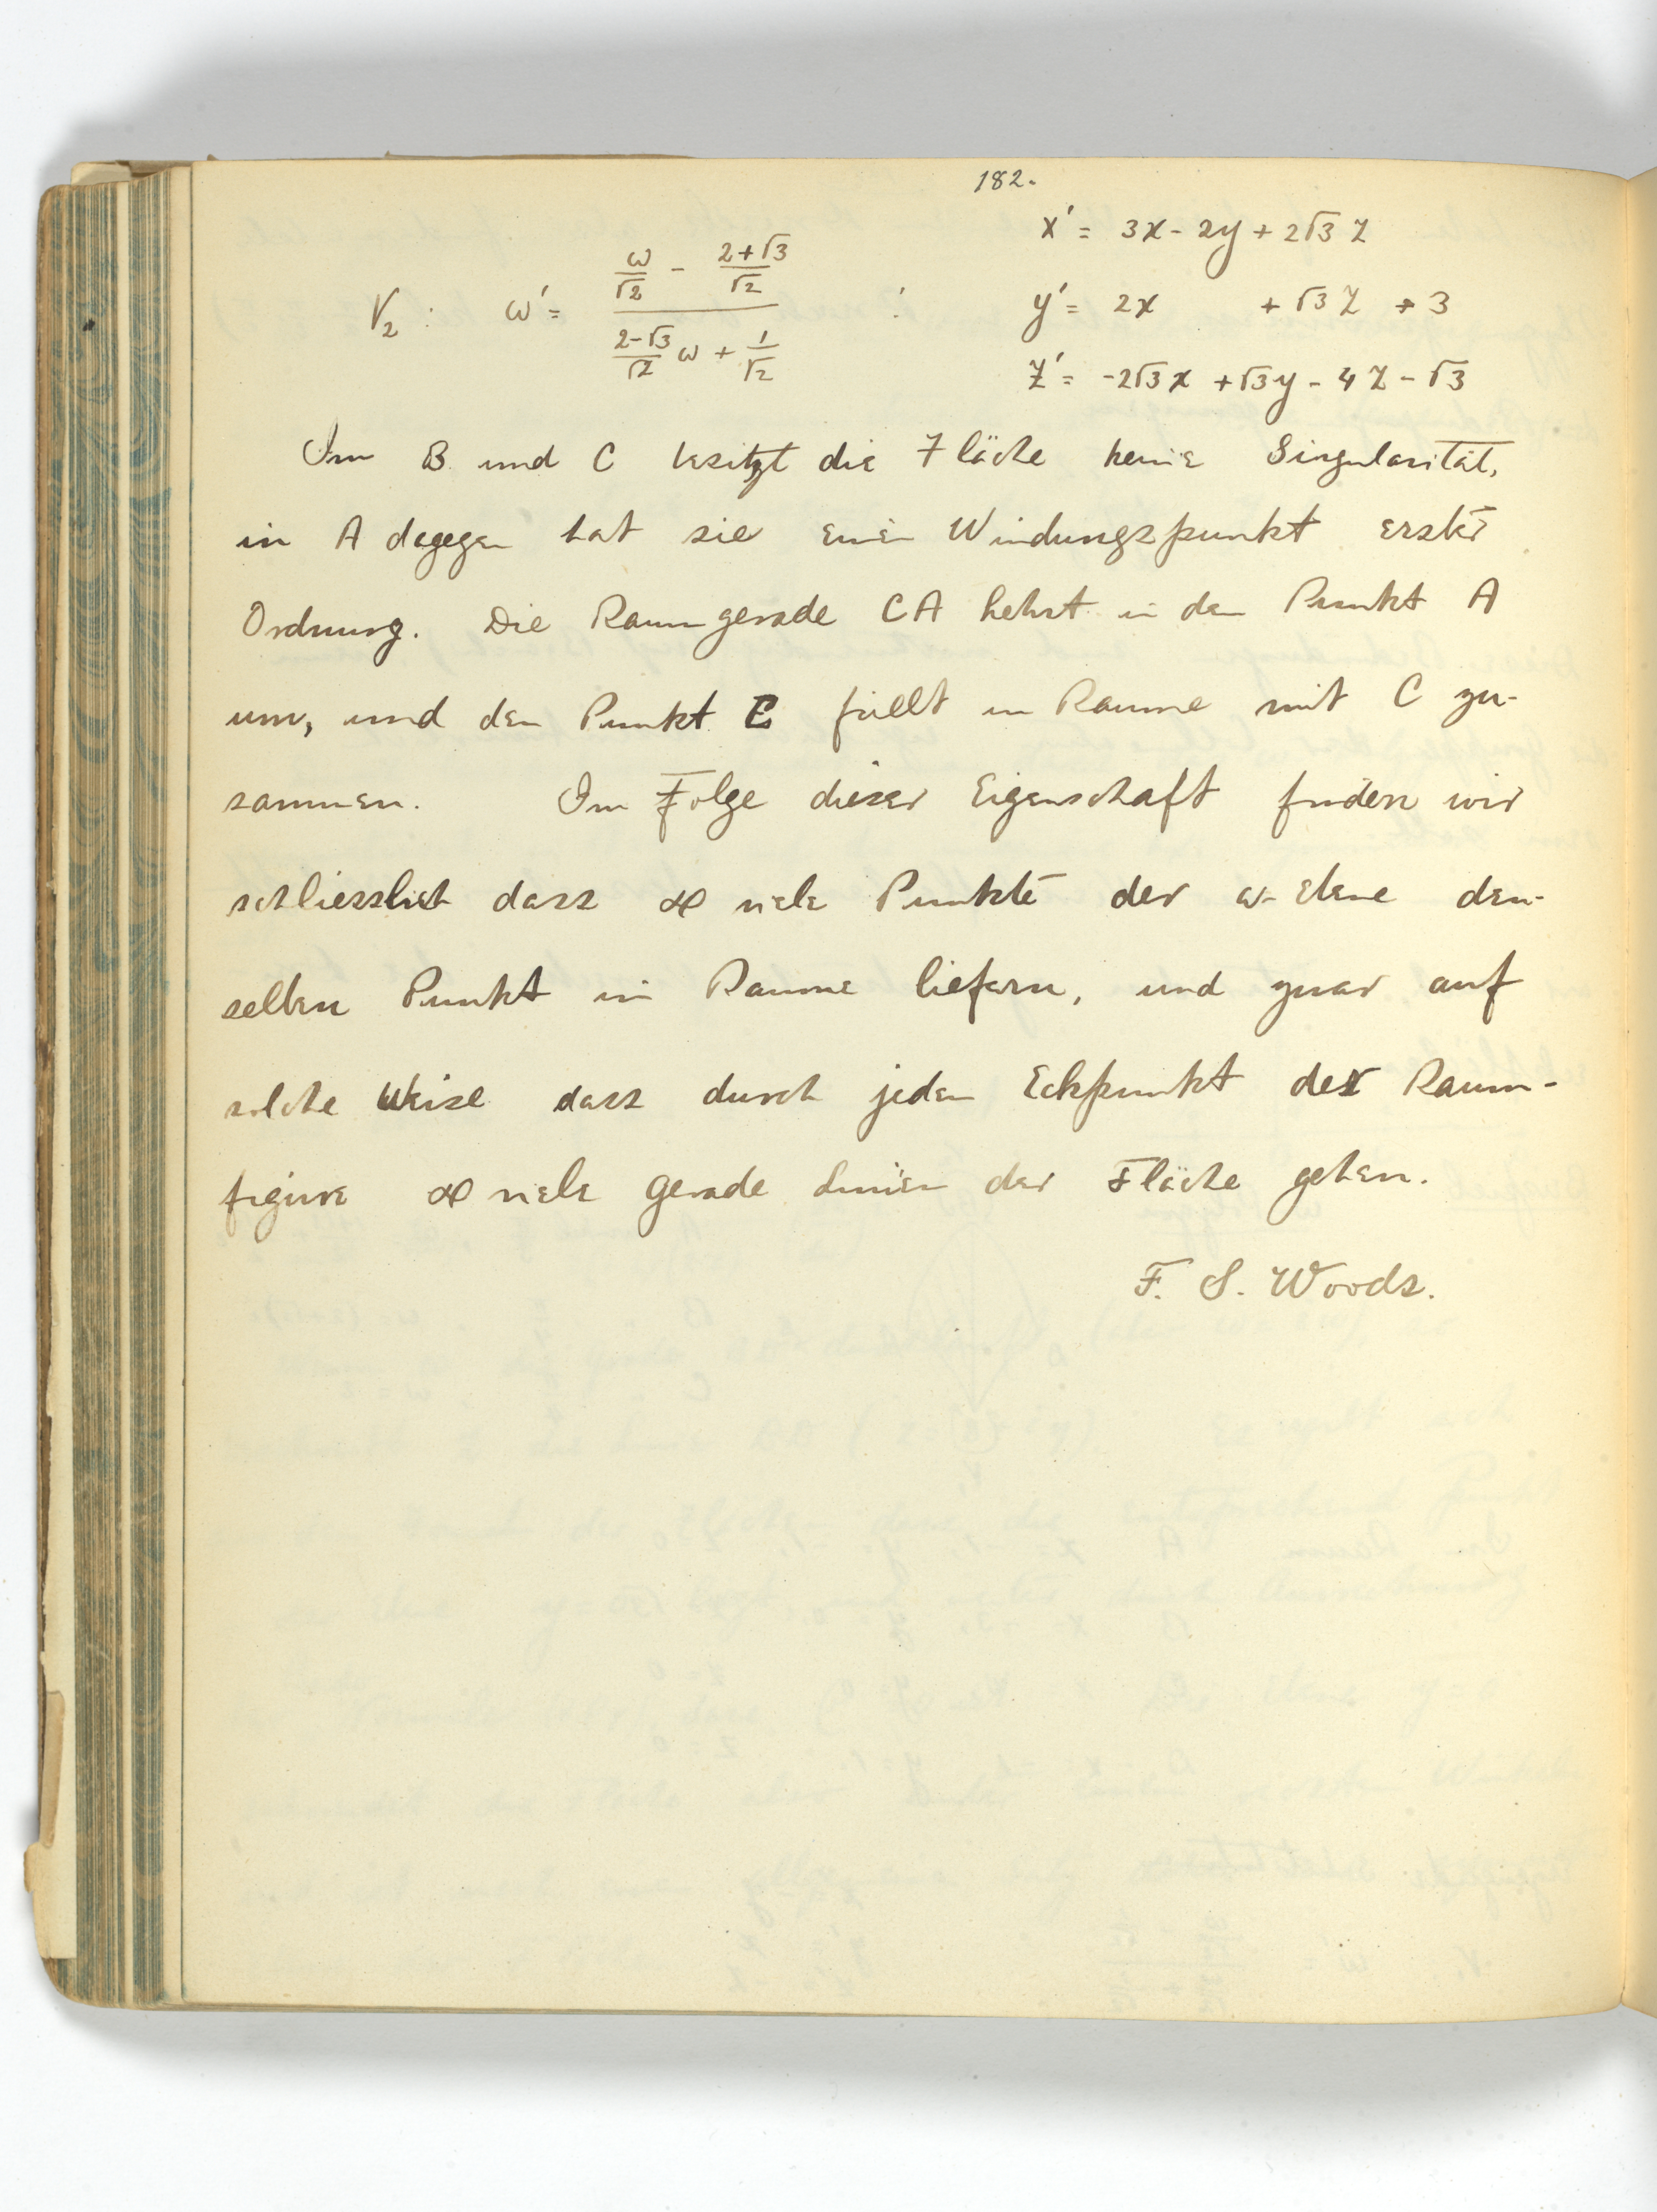 182.
x' = 3x - 2y + 2√3 z
V₂ : ω' = (ω/√2 - (2+√3)/√2) / ((2-√3)/√2 ω + 1/√2) : y' = 2x + √3 z + 3
z' = -2√3 x + √3 y - 4z - √3
Im B und C besitzt die Fläche keine Singularität,
in A dagegen hat sie einen Windungspunkt erster
Ordnung. Die Raumgerade CA kehrt in den Punkt A
um, und den Punkt E fällt im Raume mit C zu-
sammen. Im Folge dieser Eigenschaft finden wir
schliesslich dass ∞ viele Punkte der ω-Ebene den-
selben Punkt im Raume liefern, und zwar auf
solche Weise dass durch jeden Eckpunkt der Raum-
figure ∞ viele gerade Linien der Fläche gehen.
F. S. Woods.